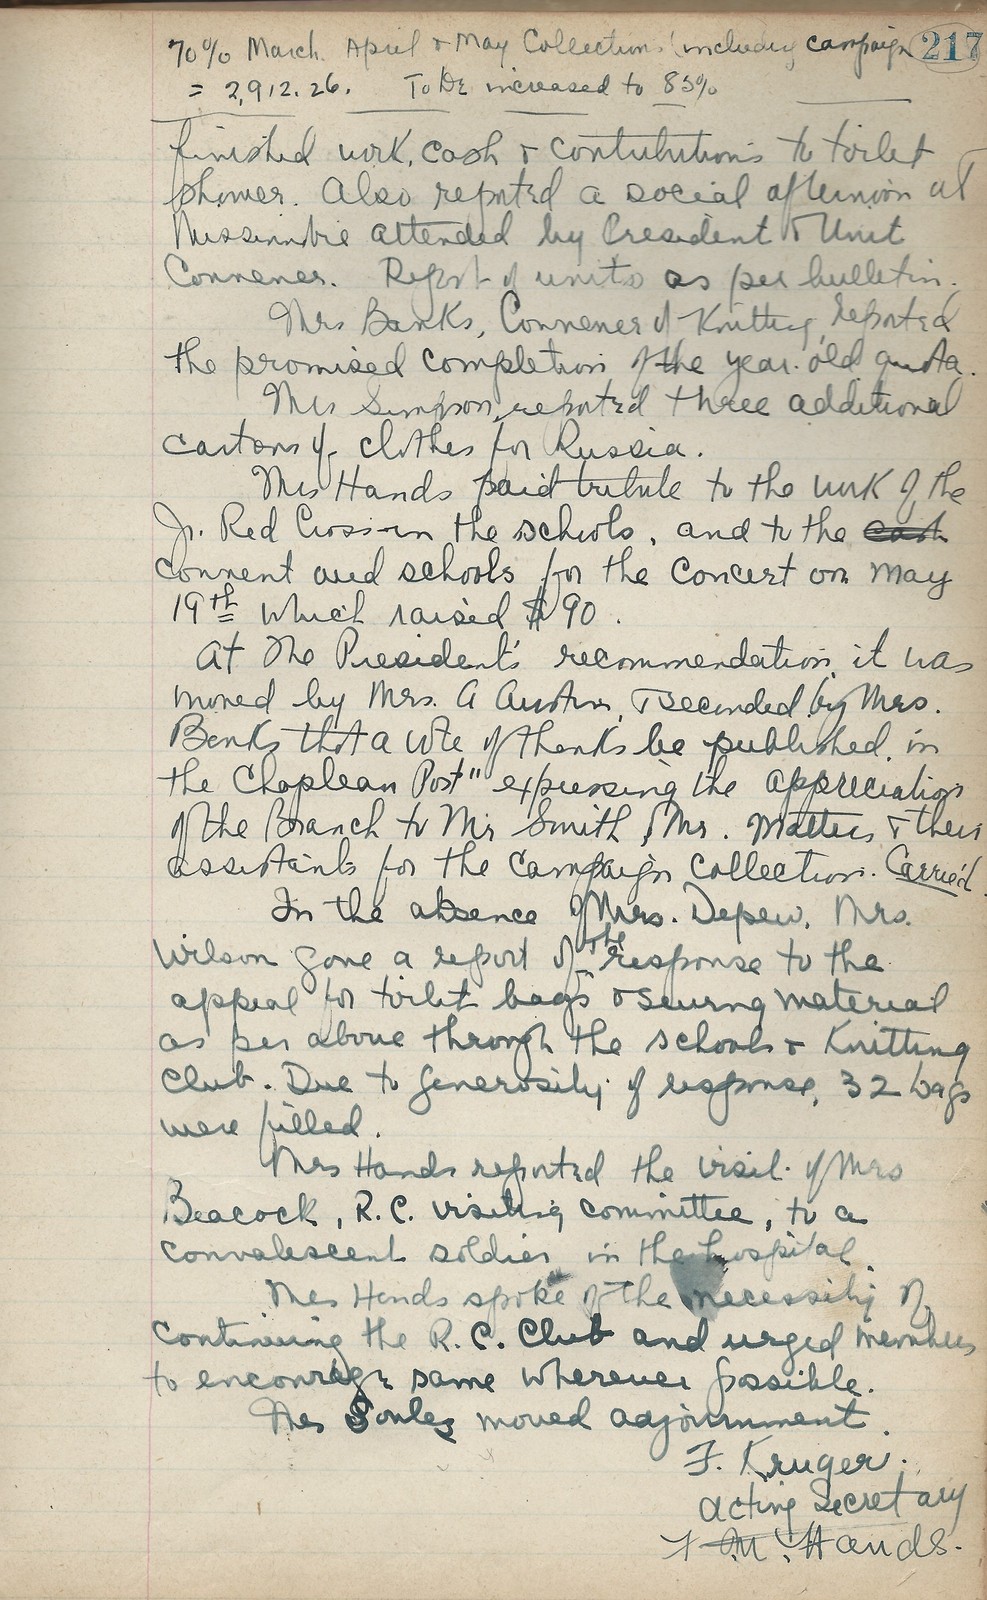 70% March April & May Collections (including campaign 217
= 2,912.26. To be increased to 85%
finished work, cash & contributions to toilet
shower. Also reported a social afternoon at
Missanabie attended by President & Unit
Convener. Report of units as per bulletin.
Mrs Banks, Convener of Knitting, reported
the promised completion of the year old quota.
Mrs Simpson, reported three additional
cartons of clothes for Russia.
Mrs Hands paid tribute to the work of the
Jr. Red Cross in the schools, and to the cash
convent and schools for the concert on May
19th which raised $90.
At the President's recommendation, it was
moved by Mrs. A Austin, & seconded by Mrs.
Banks that a vote of thanks be published in
the Chapleau Post" expressing the appreciation
of the Branch to Mr Smith, Mr. Matters & their
assistants for the campaign collection. Carried
In the absence of Mrs. Depew, Mrs.
Wilson gave a report of the response to the
appeal for toilet bags & sewing material
as per above through the schools & Knitting
Club. Due to generosity of response, 32 bags
were filled.
Mrs Hands reported the visit of Mrs
Beacock, R.C. visiting committee, to a
convalescent soldier in the hospital.
Mrs Hands spoke of the necessity of
continuing the R.C. Club and urged members
to encourage same wherever possible.
Mrs moved adjournment.
F. Kruger.
Acting Secretary
M. Hands.